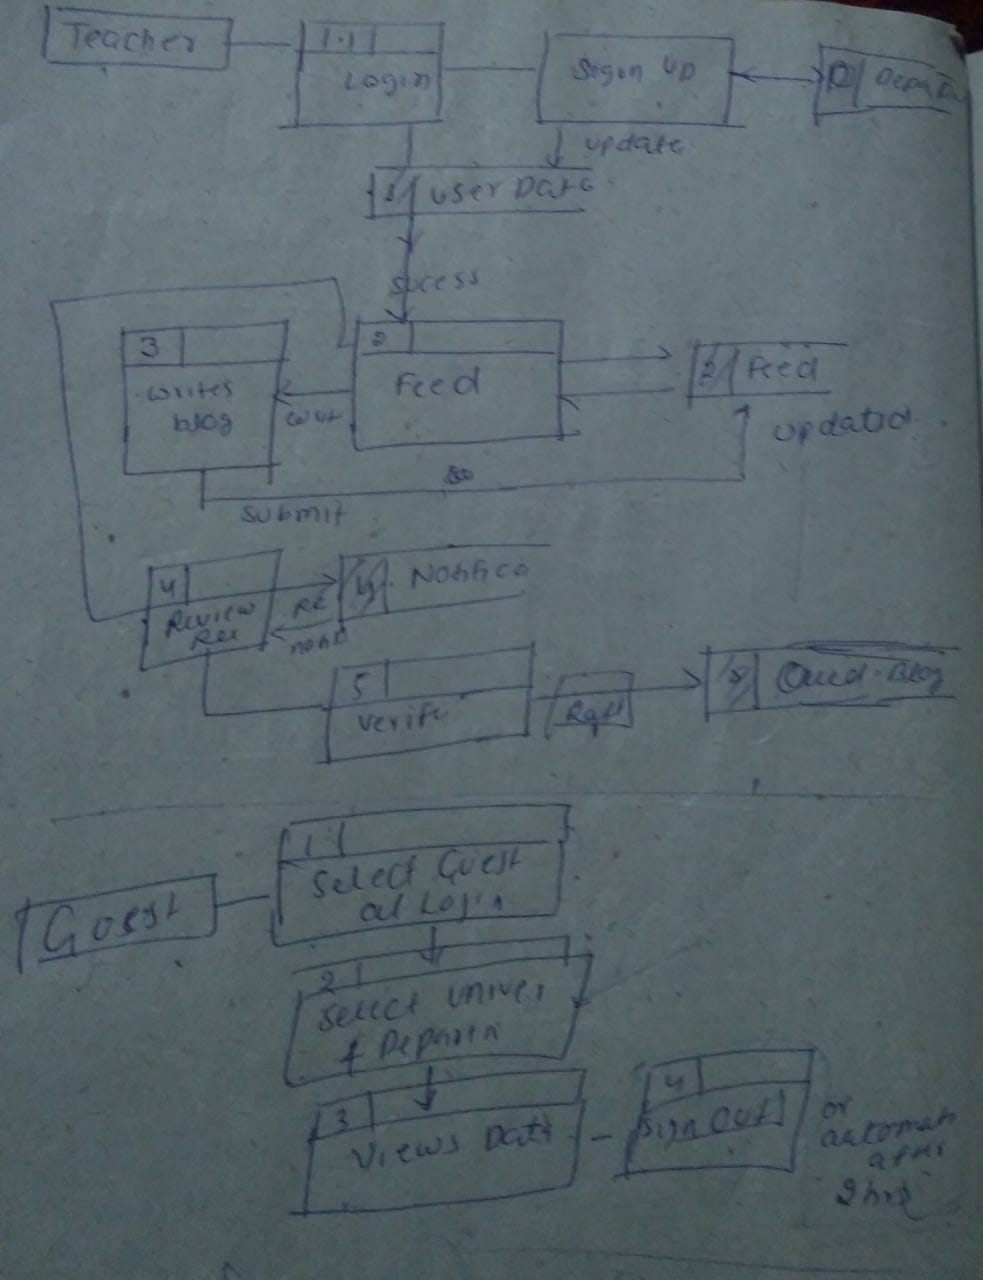 Teacher
1.1
Login
Sign UP
D
Depart
update
1
User Data
Sucess
3
writes
blog
writ
2
Feed
2
Feed
updated
submit
4
Review
Re
noti
4
Notifica
5
Verify
5
-Blog
1
Select Guest
at Login
Goest
2
Select Univer
+ Departm
3
Views Data
4
Sign Out
or
automati
after
2 hrs